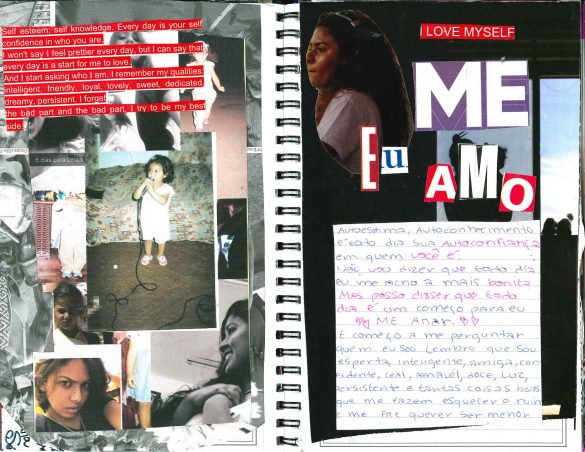 Self esteem; self knowledge. Every day is your self
confidence in who you are.
I won't say I feel prettier every day, but I can say that
every day is a start for me to love.
And I start asking who I am. I remember my qualities:
intelligent, friendly, loyal, lovely, sweet, dedicated,
dreamy, persistent. I forget
the bad part and the bad part, I try to be my best
side.
I LOVE MYSELF
ME
Eu
AMO
Autoestima, Autoconhecimento
é todo dia sua Autoconfiança
em quem você é.
Não vou dizer que todo dia
eu me acho a mais bonita
Mas posso dizser que todo
dia é um começo para eu
ME Amar.
E começo a me perguntar
quem eu sou. Lembro que sou
esperta, inteligente, amiga, con
fidente, leal, amável, doce, LUZ,
persistente e tantas coisas boas
que me fazem esquecer o ruim
e me faz querer ser menor